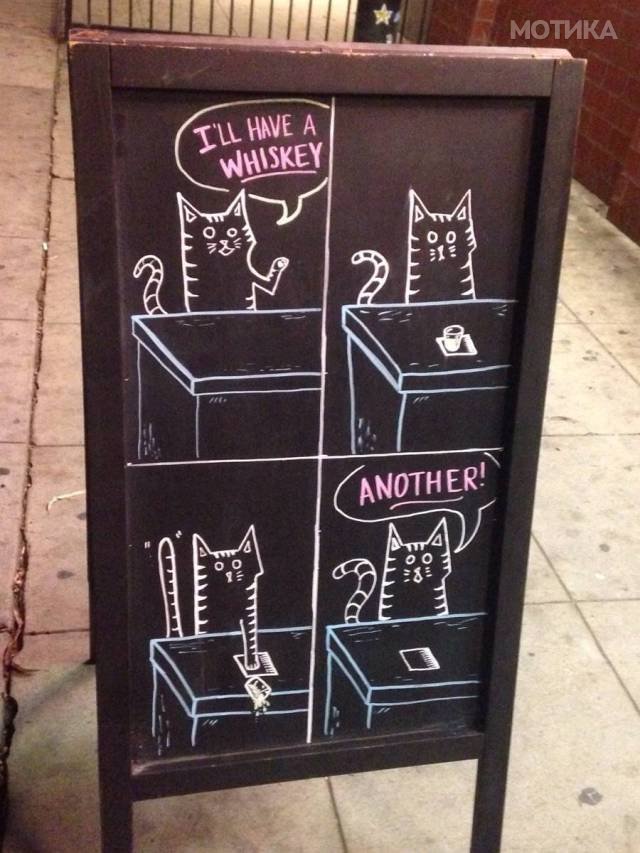 МОТИКА
I'LL HAVE A
WHISKEY
ANOTHER!